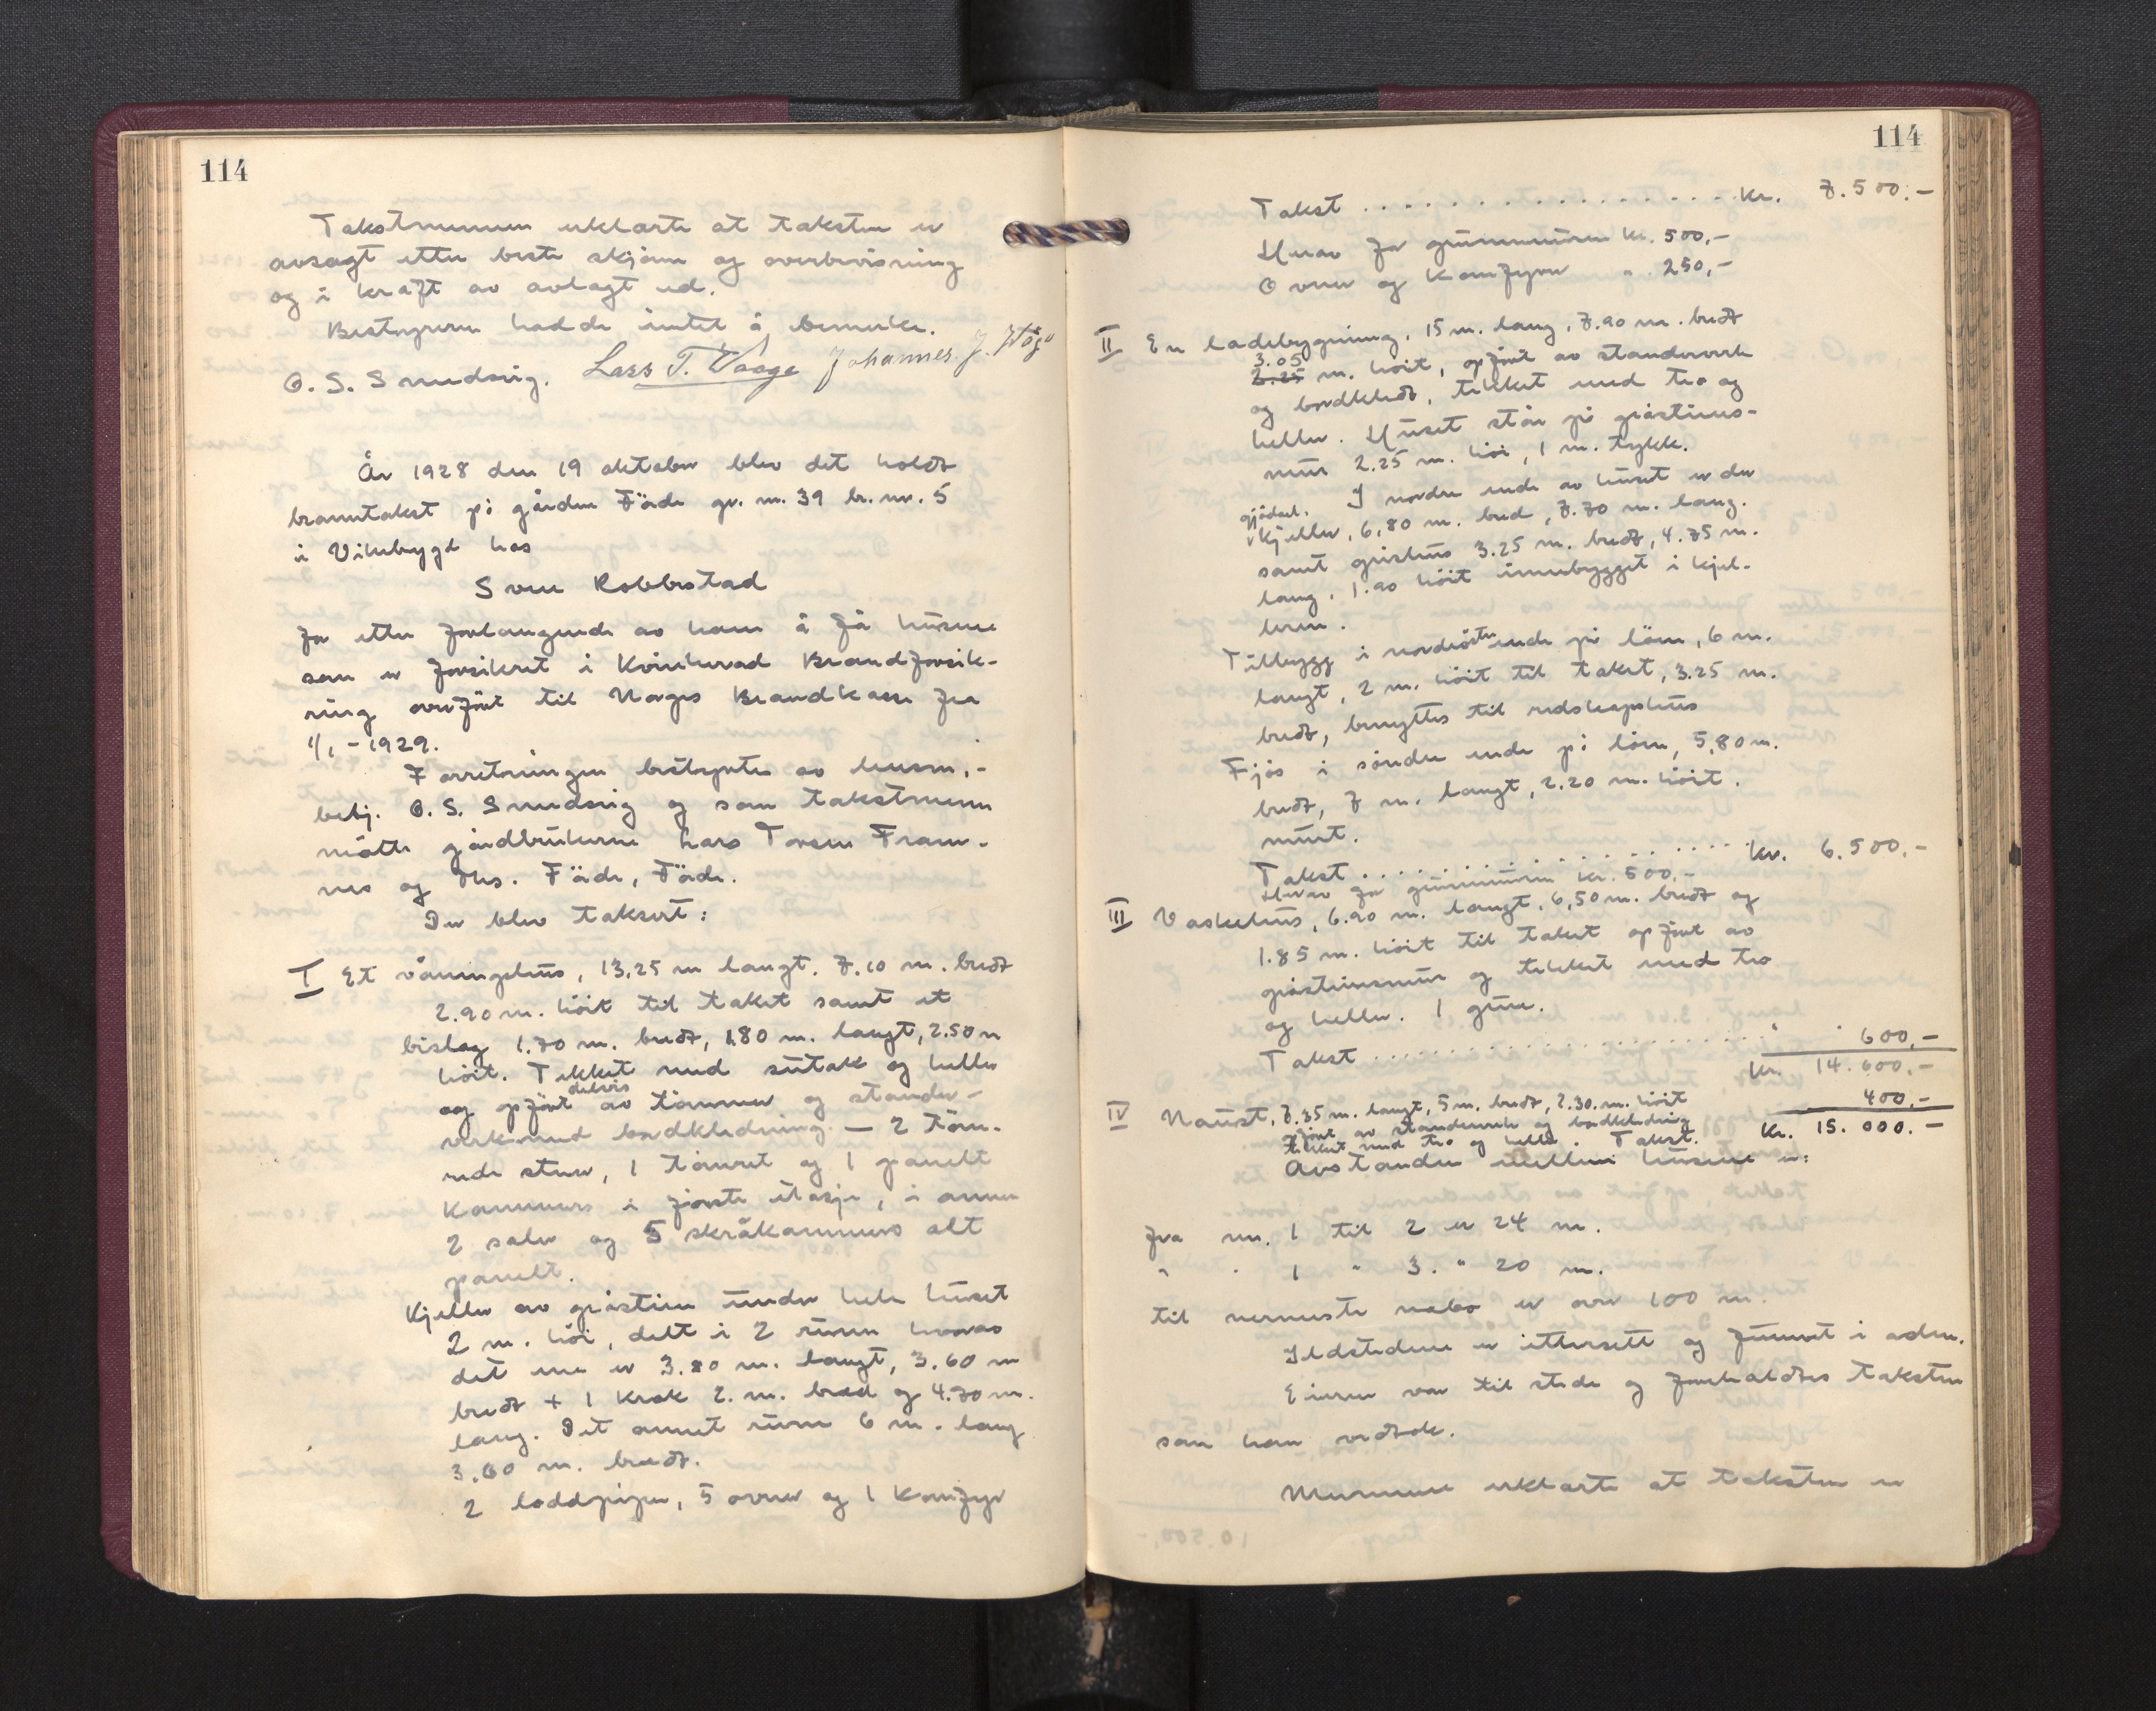 114
Takstmennene erklærte at taksten er
avsagt etter beste skjønn og overbevisning
og i kraft av avlagt ed.
Bestyreren hadde intet å bemerke.
O. S. Smedsvig. Lars T. Vaage Johannes J. Våge
År 1928 den 19 oktober blev det holdt
branntakst på gården Føde gr. nr. 39 br. nr. 5
i Vikebygd hos
Sven Robberstad
for etter forlangende av ham å få husene
som er forsikret i Kvinherad Brandforsik-
ring overført til Norges Brandkasse fra
1/1 - 1929.
Forretningen bestyrtes av lensm.-
betj. O. S. Smedsvig og som takstmenn
møtte gårdbrukerne Lars Torsen Fram-
nes og Føde, Føde.
Der blev taksert:
I Et våningshus, 13,25 m langt. 7.10 m. bredt
2.90 m. höit til taket samt et
bislag 1.70 m. bredt, 1.80 m. langt, 2.50 m
höit. Tekket med sutak og heller
og opført delvis av tømmer og stender-
verk med bordkledning. - 2 töm-
rede stuer, 1 tömret og 1 panelt
kammers i første etasje, i annen
2 saler og 5 skråkammers alt
panelt.
Kjeller av gråstein under hele huset
2 m. höi, delt i 2 rum hvorav
det ene er 3.80 m. langt, 3.60 m
bredt + 1 krok 2. m. bred og 4.70 m.
lang. Det annet rum 6 m. lang
3.60 m. bredt.
2 loddpiper, 5 ovner og 1 komfyr
114
Takst . . . . . . . . . . . . . . . . . . Kr. 7.500.-
Herav for grunnmuren kr. 500,-
Ovner og komfyren " 250,-
II En ladebygning, 15 m. lang, 7.90 m. bredt
3.05
2.25 m. höit, opfört av stenderverk
og bordkledt, tekket med tro og
heller. Huset står på gråsteins-
mur 2.25 m. höi, 1 m. tykk.
I nordre ende av huset er der
gjödsel.
kjeller, 6,80 m. bred, 7.70 m. lang.
samt grishus 3.25 m. bredt, 4.75 m.
lang, 1.90 höit innebygget i kjel-
leren.
Tilbygg i nordøstre ende på löen, 6 m.
langt, 2 m. höit til taket, 3.25 m.
bredt, benyttes til redskapshus
Fjös i söndre ende på löen, 5,80 m.
bredt, 7 m. langt, 2.20 m. höit.
murt.
Takst . . . . . . . . . . . . . . . . . . Kr. 6.500.-
Herav for grunnmuren kr. 500.-
III Vaskehus, 6.90 m. langt, 6,50 m. bredt og
1.85 m. höit til taket opfört av
gråsteinsmur og tekket med tro
og heller. 1 grue.
Takst . . . . . . . . . . . . . . . . . . " 600,-
Kr. 14.600.-
IV Naust, 7.35 m. langt, 5 m. bredt, 2.30. m. höit 400.-
opfört av stenderverk og bordkledning
tekket med tro og heller. Takst. Kr. 15.000.-
Avstanden mellem husene er:
fra nr. 1 til 2 er 24 m.
" " 1 " 3. " 20 m.
til nermeste nabo er over 100 m.
Ildstedene er ettersett og funnet i orden.
Eieren var til stede og foreholdtes taksten
som han vedtok.
Mennene erklærte at taksten er